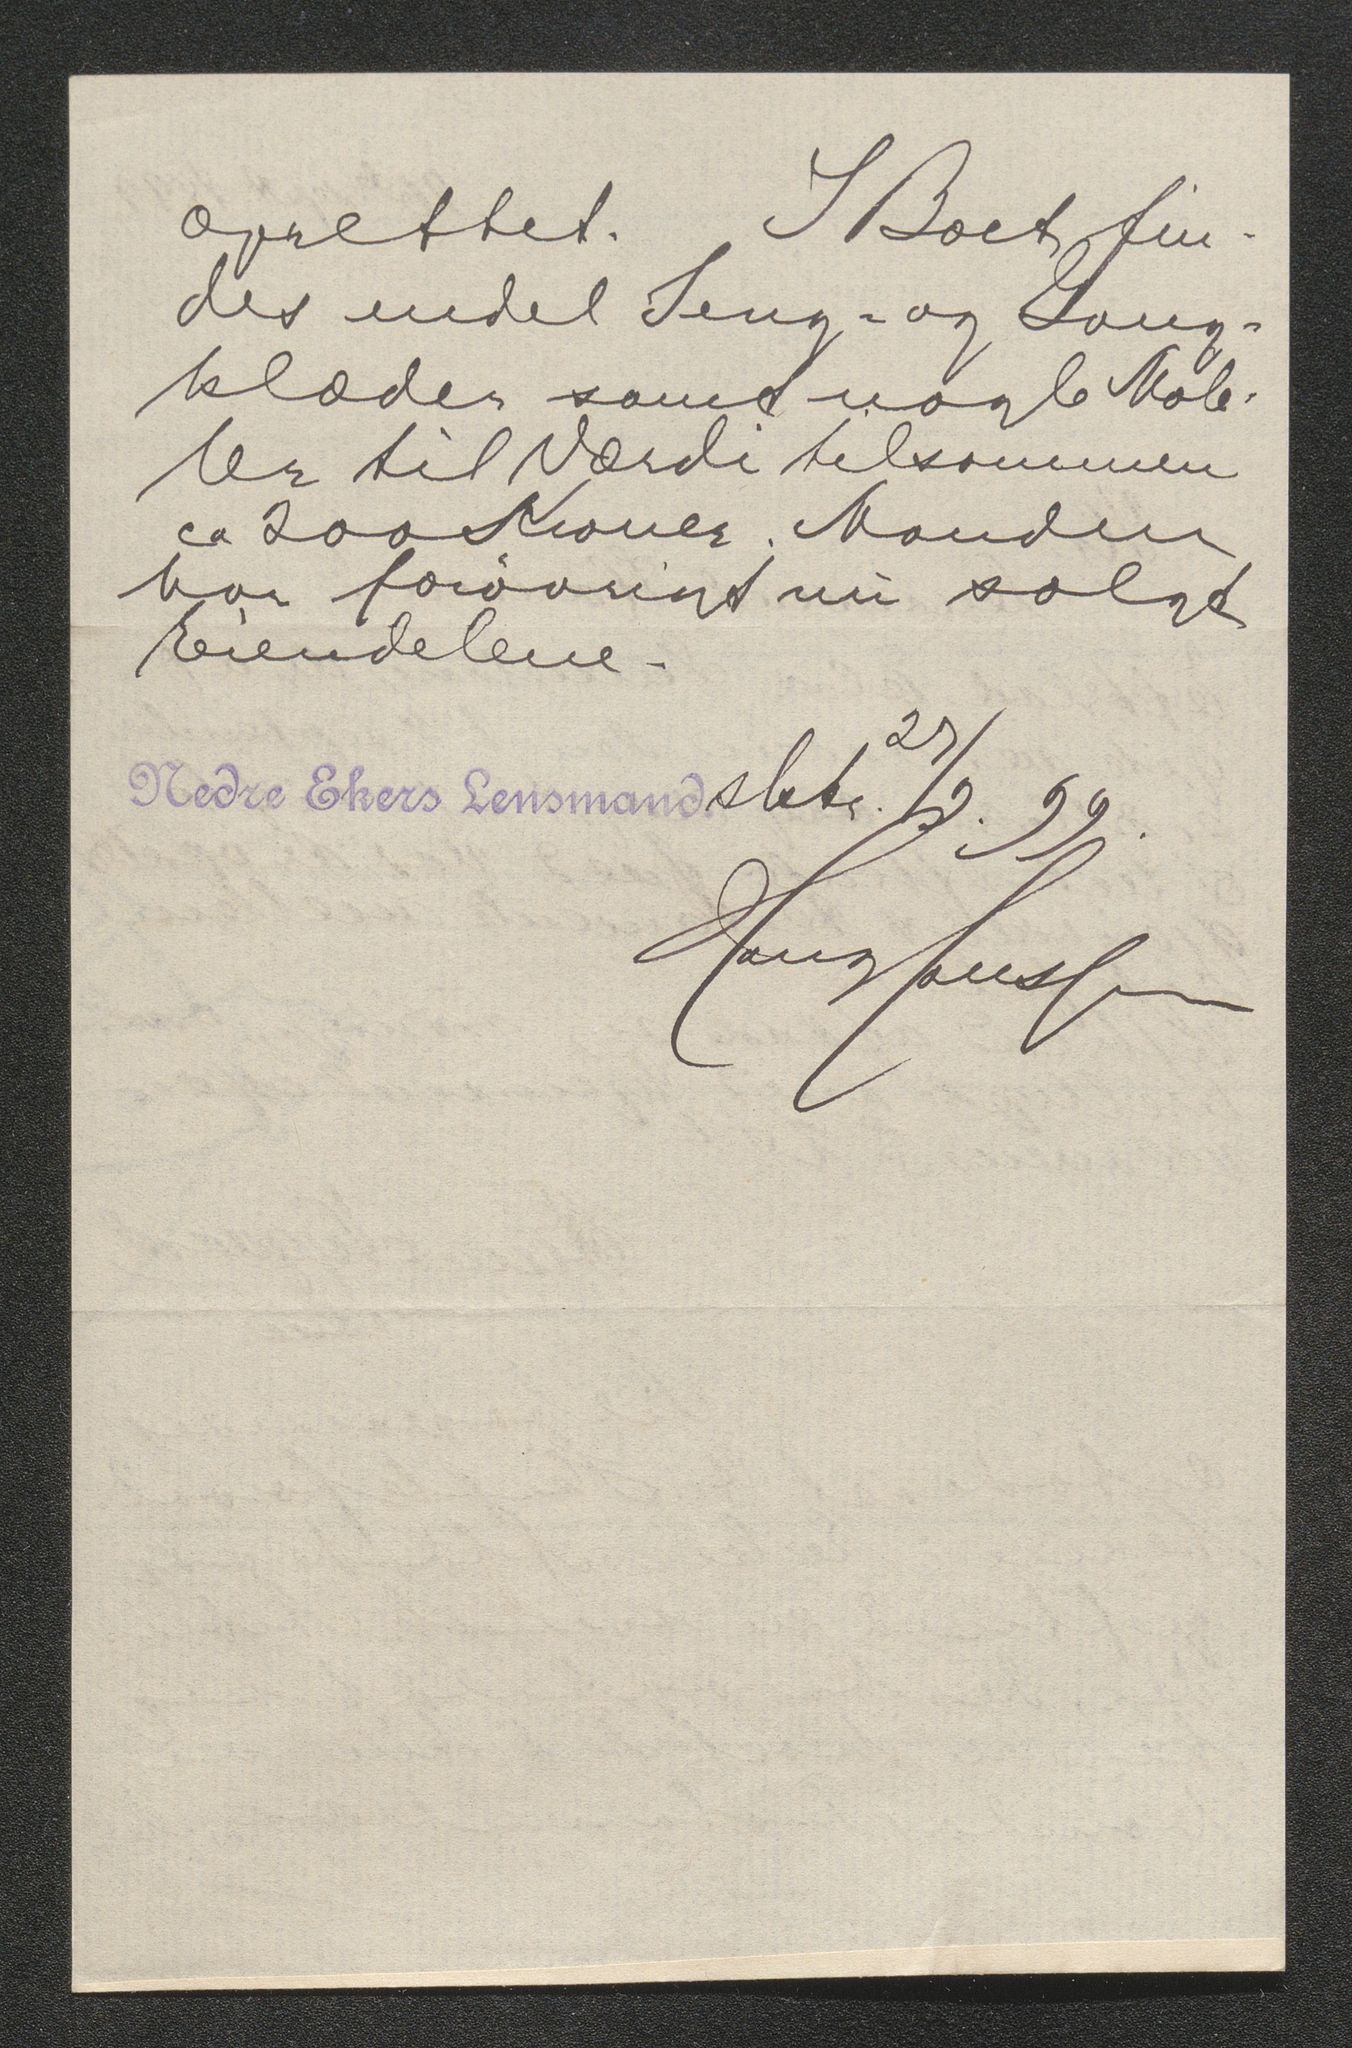 oprettet. I Boet fin-
des endel Seng- og Gang-
klæder samt nogle Møb-
ler til Værdi tilsammen
ca 200 Kroner. Manden
har forøvrigt nu solgt
Eiendelene.
Nedre Ekers Lensmand. sktr. 27/9. 99.